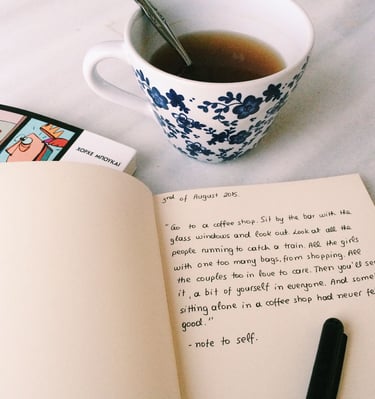 ΧΟΡΧΕ ΜΠΟΥΚΑΙ
3rd of August 2015.
"Go to a coffee shop. Sit by the bar with the
glass windows and look out. Look at all the
people running to catch a train. All the girls
with one too many bags, from shopping. All
the couples too in love to care. Then you'll see
it, a bit of yourself in everyone. And
sitting alone in a coffee shop had never
good."
- note to self.